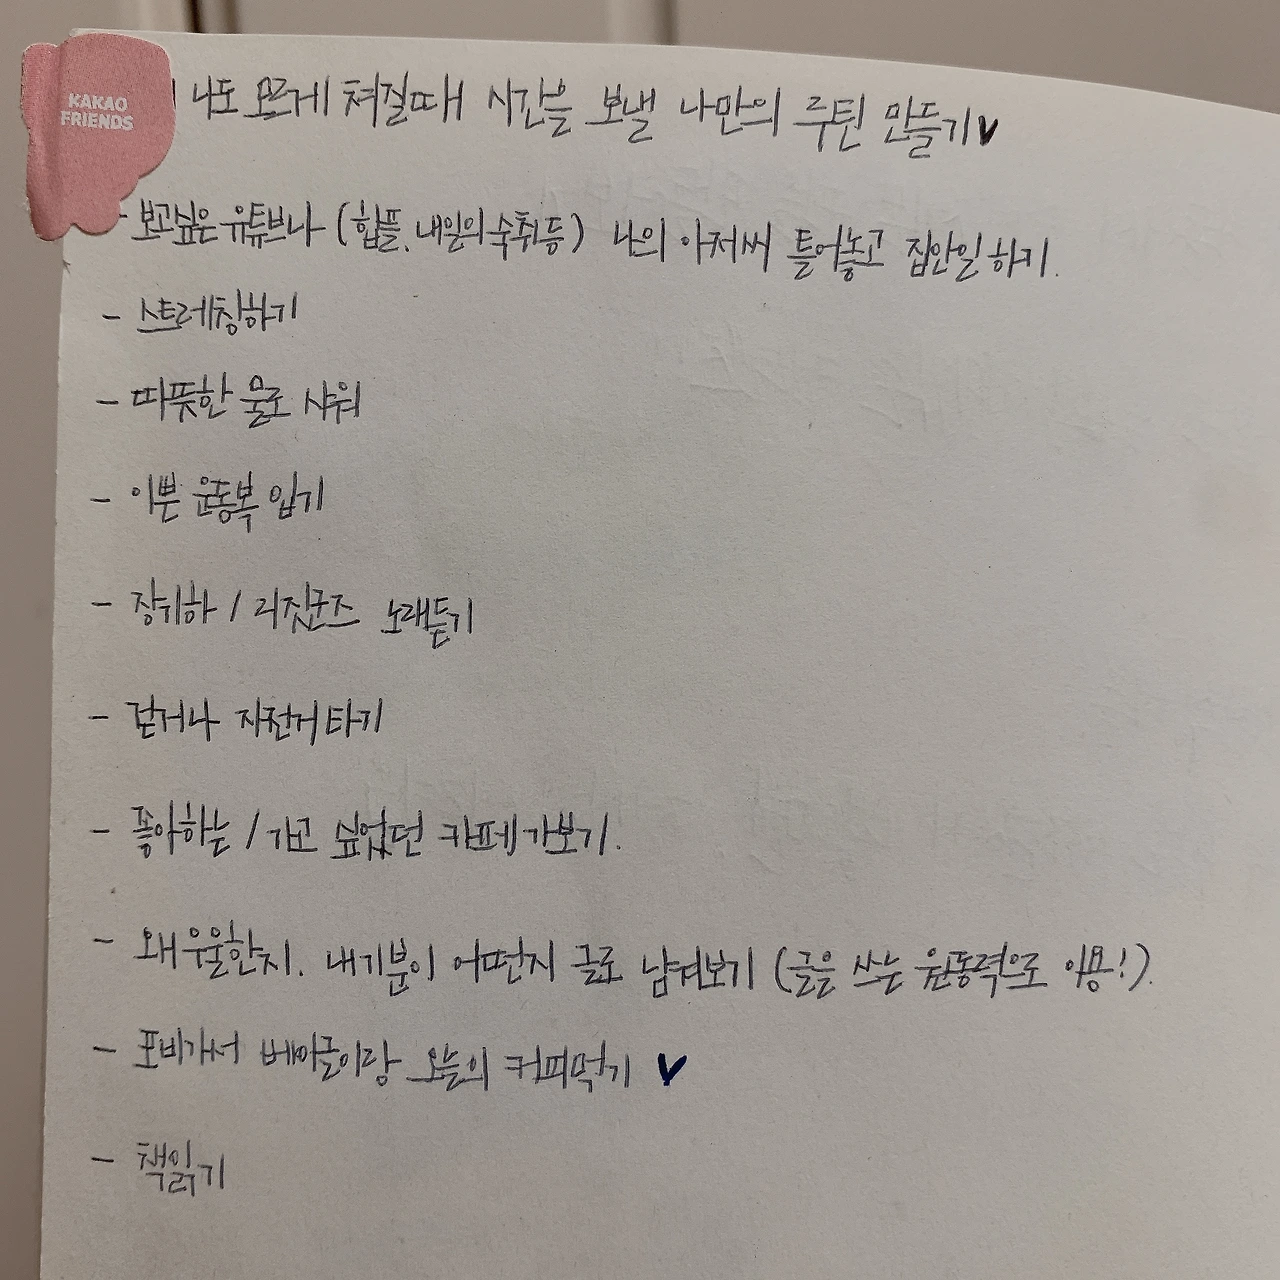 KAKAO
FRIENDS
나도 모르게 쳐질때 시간을 보낼 나만의 루틴 만들기♥
- 보고싶은 유튜브나 (핫플, 내일의 숙취 등) 나의 아저씨 틀어놓고 집안일 하기.
- 스트레칭하기
- 따뜻한 물로 샤워
- 이쁜 운동복 입기
- 장기하 / 리짓군즈 노래듣기
- 걷거나 자전거타기
- 좋아하는 / 가고 싶었던 카페 가보기.
- 왜 우울한지. 내기분이 어떤지 글로 남겨보기 (글을 쓰는 원동력으로 이용!).
- 포비가서 베이글이랑 오늘의 커피먹기 ♥
- 책읽기